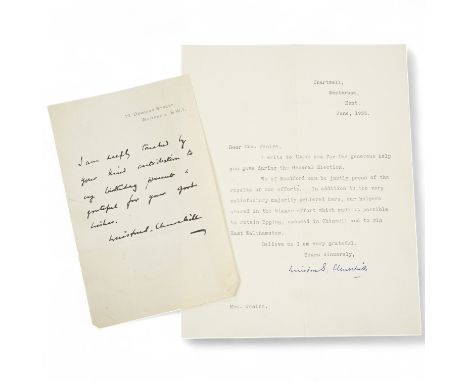 10, Downing Street,
Whitehall, S.W.1.
I am deeply touched by
your kind contribution to
my birthday present &
grateful for your good
wishes.
Winston S. Churchill
Chartwell,
Westerham,
Kent.
June, 1955.
Dear Mrs.
I write to thank you for the generous help
you gave during the General Election.
We of Woodford can be justly proud of the
results of our efforts. In addition to the very
satisfactory majority achieved here, our helpers
shared in the bigger effort which made it possible
to retain Epping, succeed in Chigwell and to win
East Walthamstow.
Believe me I am very grateful.
Yours sincerely,
Winston S. Churchill
Mrs.